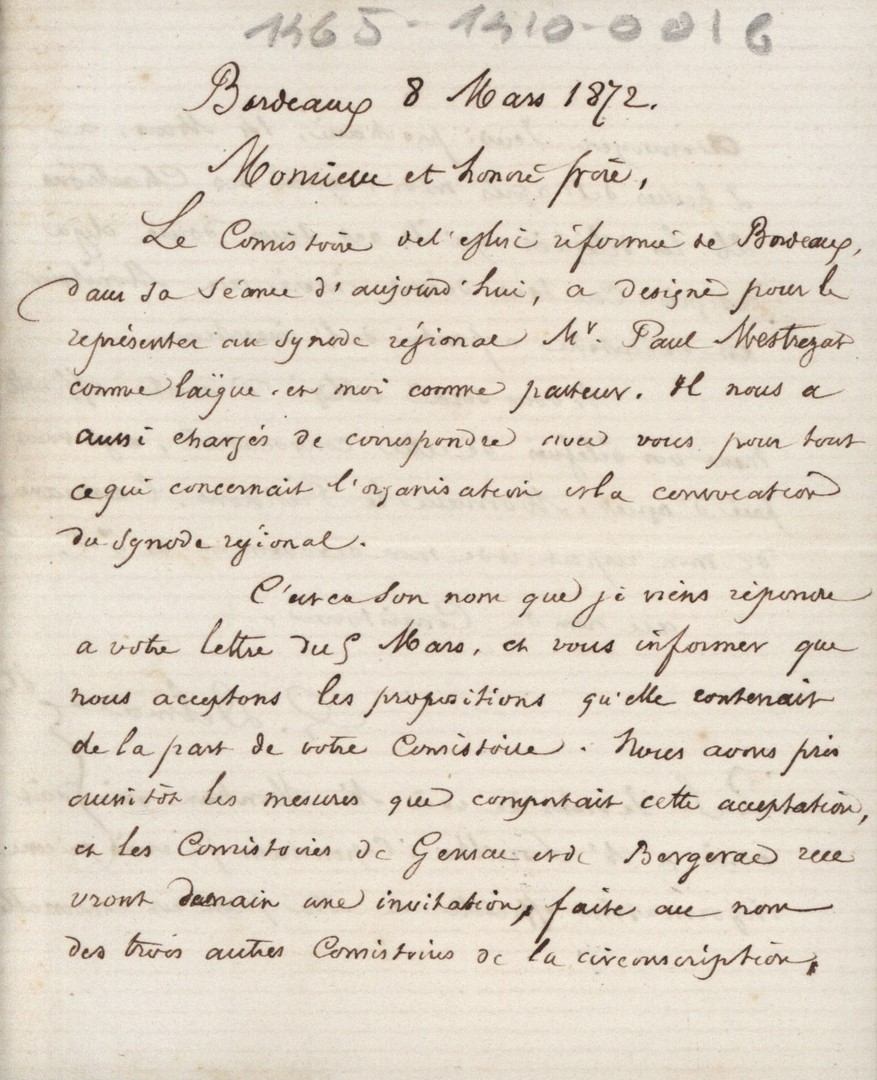 1465-1410-0016
Bordeaux 8 Mars 1872.
Monsieur et honoré frère,
Le Consistoire de l'église réformée de Bordeaux,
dans sa séance d'aujourd'hui, a designé pour le
représenter au synode régional Mr. Paul Mestrezat
comme laïque et moi comme pasteur. Il nous a
aussi chargés de correspondre avec vous pour tout
ce qui concernait l'organisation et la convocation
du synode régional.
C'est en son nom que je viens répondre
a votre lettre du 5 Mars, et vous informer que
nous acceptons les propositions qu'elle contenait
de la part de votre Consistoire. Nous avons pris
aussitôt les mesures que comportait cette acceptation,
et les Consistoires de Gensac et de Bergerac rece
vront demain une invitation, faite au nom
des trois autres Consistoires de la circonscription,